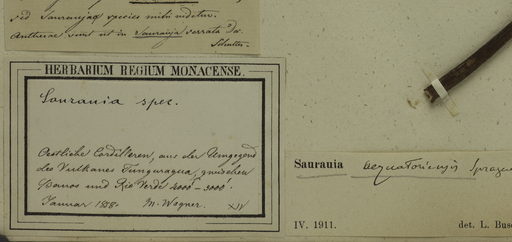 sed Saurauja species mihi videtur.
Antherae sunt ut in Saurauja serrata DC.
Schultes.
HERBARIUM REGIUM MONACENSE.
Saurania spec.
Oestliche Cordilleren, aus der Umgegend
des Vulkanes Tunguragua, zwischen
Banos und Rio Verde 2000-3000'.
Januar M. Wagner.
Saurauia aequatoriensis Sprague
IV. 1911. det. L. Busc